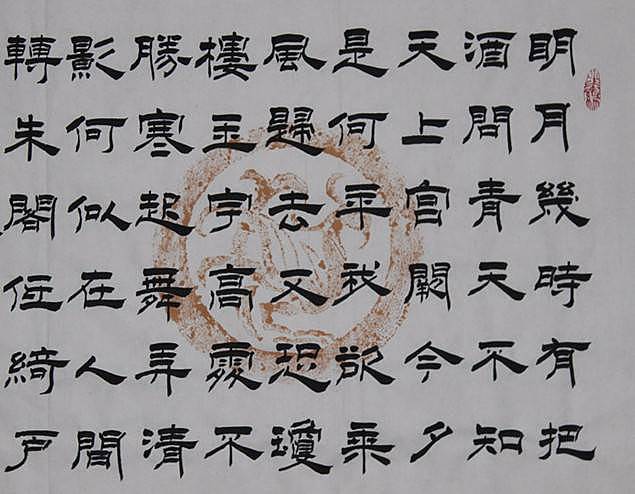 明月幾時有把
酒問青天不知
天上宮闕今夕
是何年我欲乘
風歸去又恐瓊
樓玉宇高處不
勝寒起舞弄清
影何似在人間
轉朱閣低綺戶